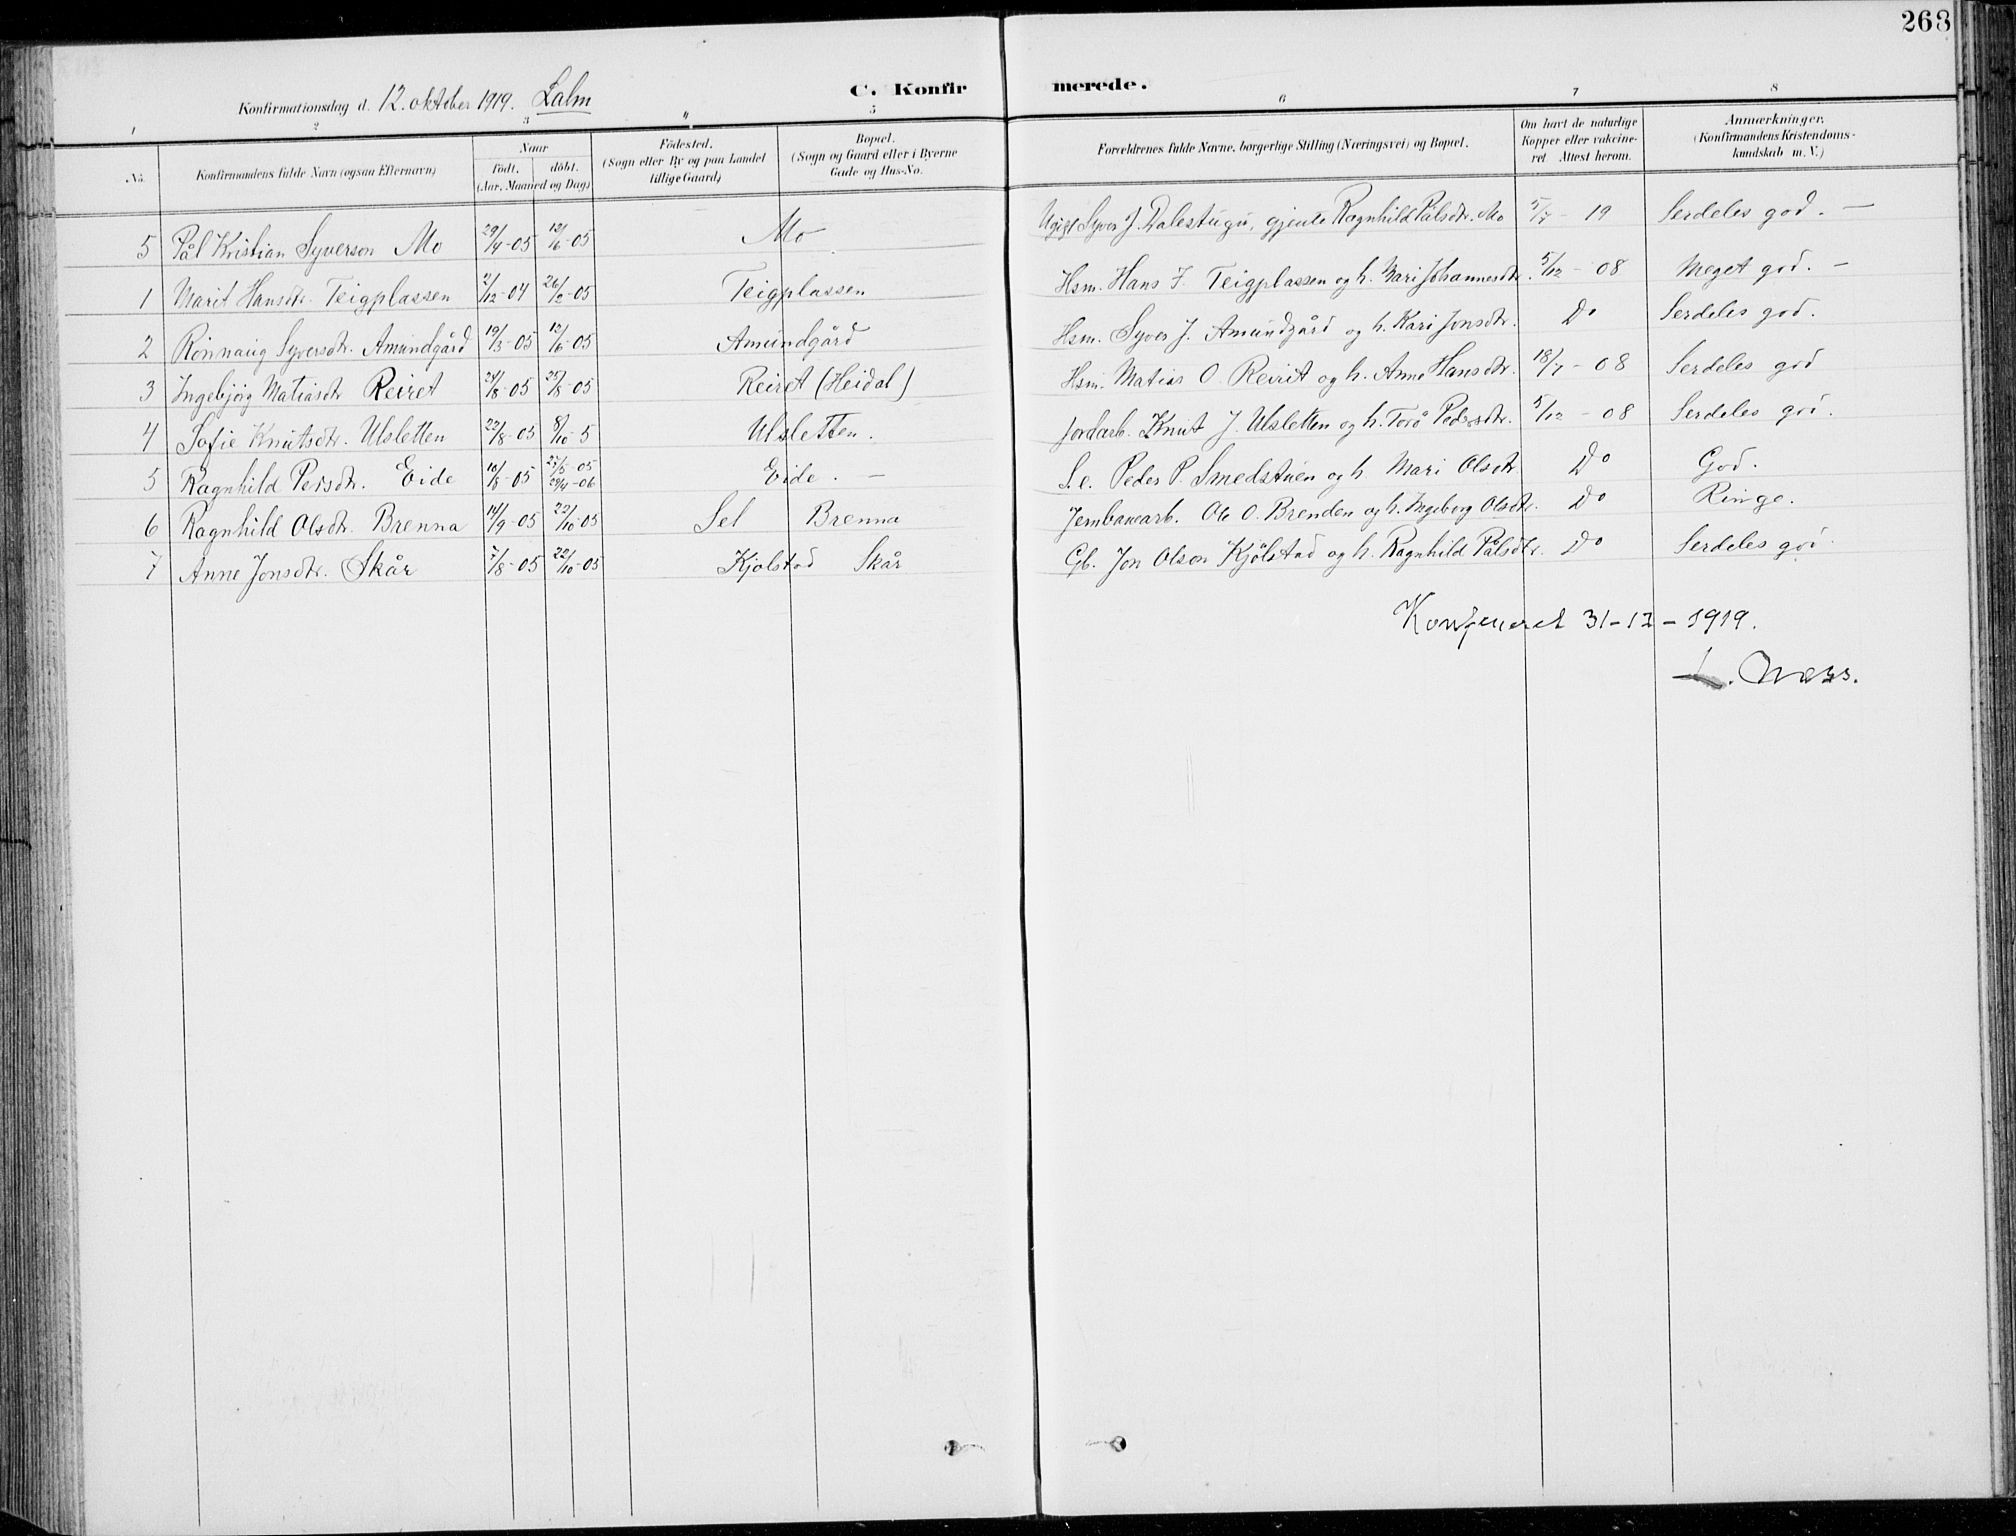 268
Konfirmationsdag d. 12. oktober 1919. Lalm
C. Konfirmerede.
1 2 3 4 5 6 7 8
No. Konfirmandens fulde Navn (ogsaa Efternavn) Naar födt. döbt. (Aar, Maaned og Dag) Födested. (Sogn eller By og paa Landet tillige Gaard) Bopæl. (Sogn og Gaard eller i Byerne Gade og Hus-No. Forældrenes fulde Navne, borgerlige Stilling (Næringsvei) og Bopæl. Om havt de naturlige Kopper eller vakcineret Attest herom. Anmærkninger. (Konfirmandens Kristendomskundskab m. V.)
5 Pål Kristian Syverson Mo 29/4-05 12/6-05 Mo Ugigt Syver J. Dalestugu, gjente Ragnhild Pålsdtr. Mo 5/7 - 19 Serdeles god. -
1 Marit Hansdtr. Teigplassen 2/12-04 26/2-05 Teigplassen Hsm. Hans J. Teigplassen og h. Mari Johannesdtr. 5/12 - 08 Meget god. -
2 Rönnaug Syversdtr. Amundgård 19/3-05 12/6-05 Amundgård Hsm. Syver J. Amundgård og h. Kari Jonsdtr. Do Serdeles god.
3 Ingebjörg Matiasdtr Reiret 24/8-05 25/8-05 Reiret (Heidal) Hsm. Matias O. Reirit og h. Anne Hansdtr. 18/7 - 08 Serdeles god
4 Sofie Knutsdtr. Ulsletten 22/8-05 8/10-5 Ulsletten. Jordarb. Knut J. Ulsletten og h. Torö Pedersdtr. 5/12 - 08 Serdeles god.
5 Ragnhild Persdtr. Eide 10/8-05 27/5-05 29/4-06 Eide. - S.e. Peder P. Smedstuen og h Mari Olsdtr Do God.
6 Ragnhild Olsdtr. Brenna 14/9-05 22/10-05 Sel Brenna Jernbanearb. Ole O. Brenden og h. Ingeborg Olsdtr. Do Ringe.
7 Anne Jonsdtr. Skår 7/8-05 22/10-05 Kjolstad Skår Gb. Jon Olson Kjölstad og h. Ragnhild Pålsdtr. Do Serdeles god.
31-12-1919.
Næss.